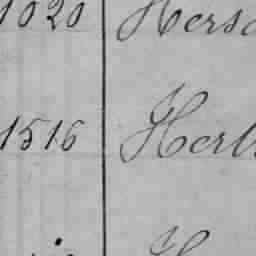 1020 Hersc
1516 Herb